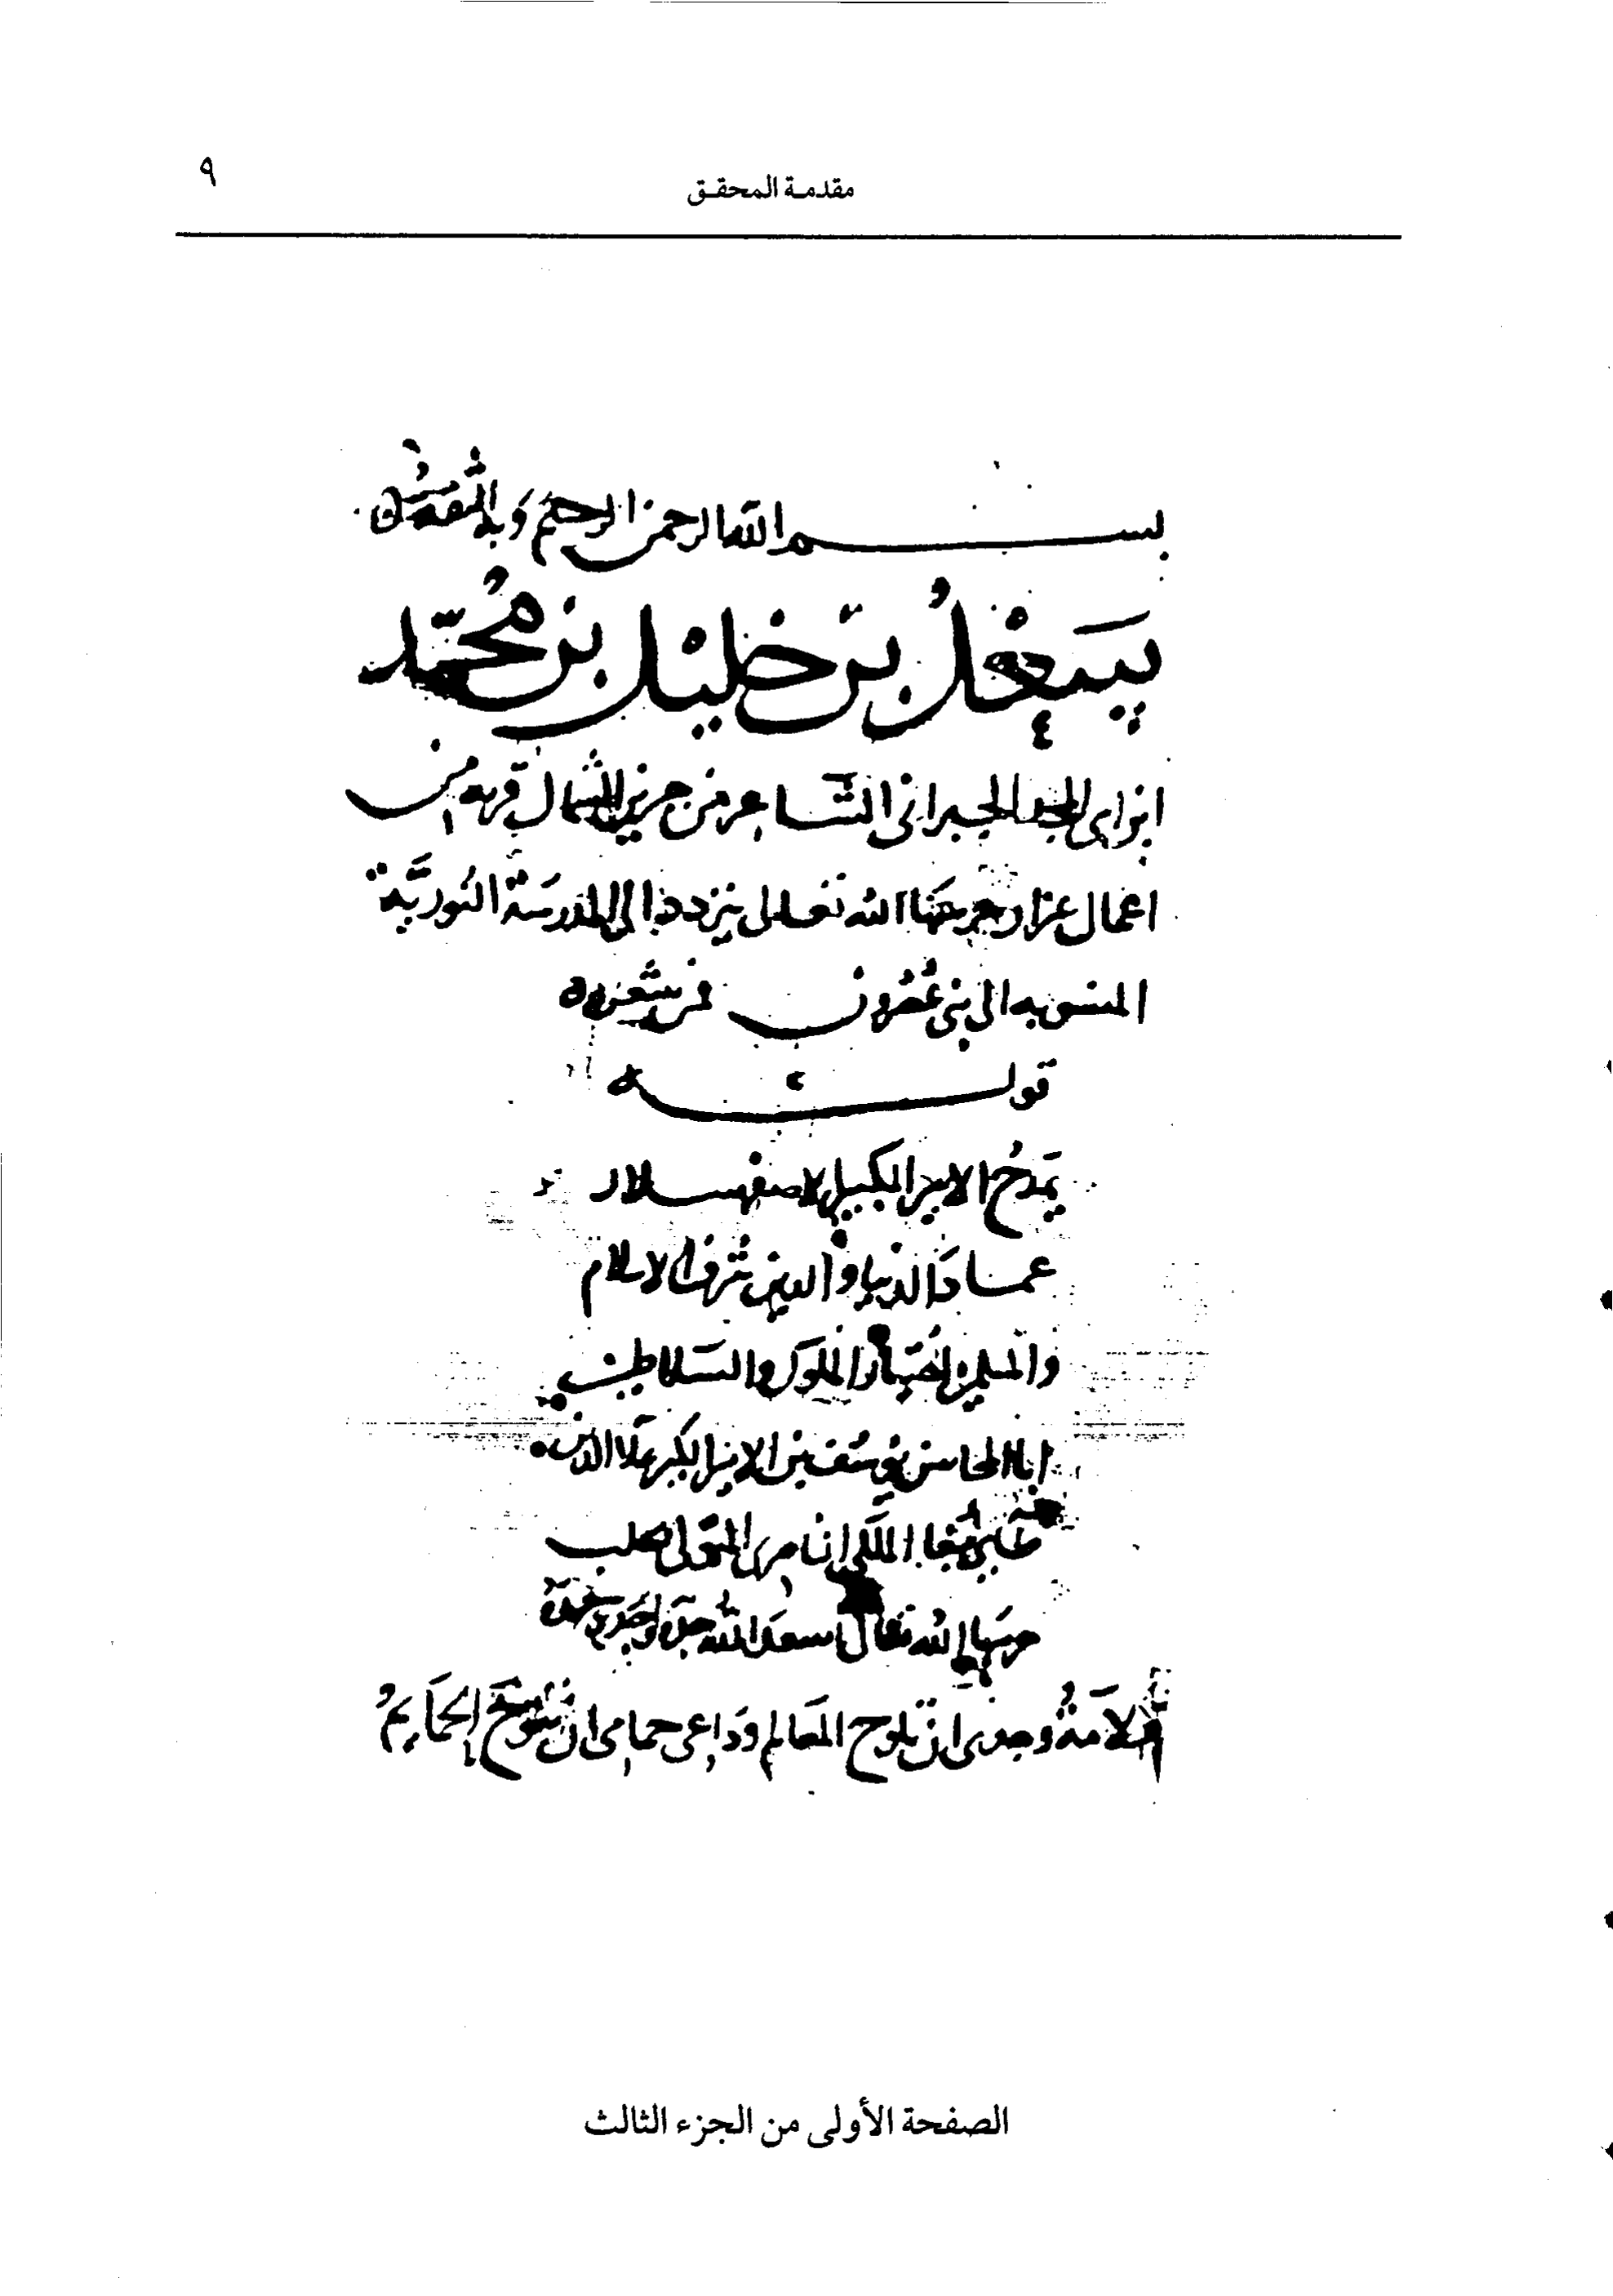 مقدمة المحقق
٩
بسم الله الرحمن الرحيم وبه ثقتي
بن خليل بن محمد
الجبراني الشاعر من جبرين الشمال قرية من
اعمال عزاز حرسها الله تعالى يتردد الى المدرسة النورية
المنسوبه الى بني عصرون فمن شعره
قوله
يمدح الامير الكبير الاصفهسلار
عماد الدنيا والدين شرف الاسلام
والمسلمين اختيار الملوك والسلاطين
ابا المحاسن يوسف بن الامير الكبير علاء الدين
طاي بغا الملكي الناصري المتولي بحلب
حرسها الله تعالى اسعد الله جده
وجدي ان تلوح المعالم وداعي حمامي ان تنوح الحمايم
الصفحة الأولى من الجزء الثالث